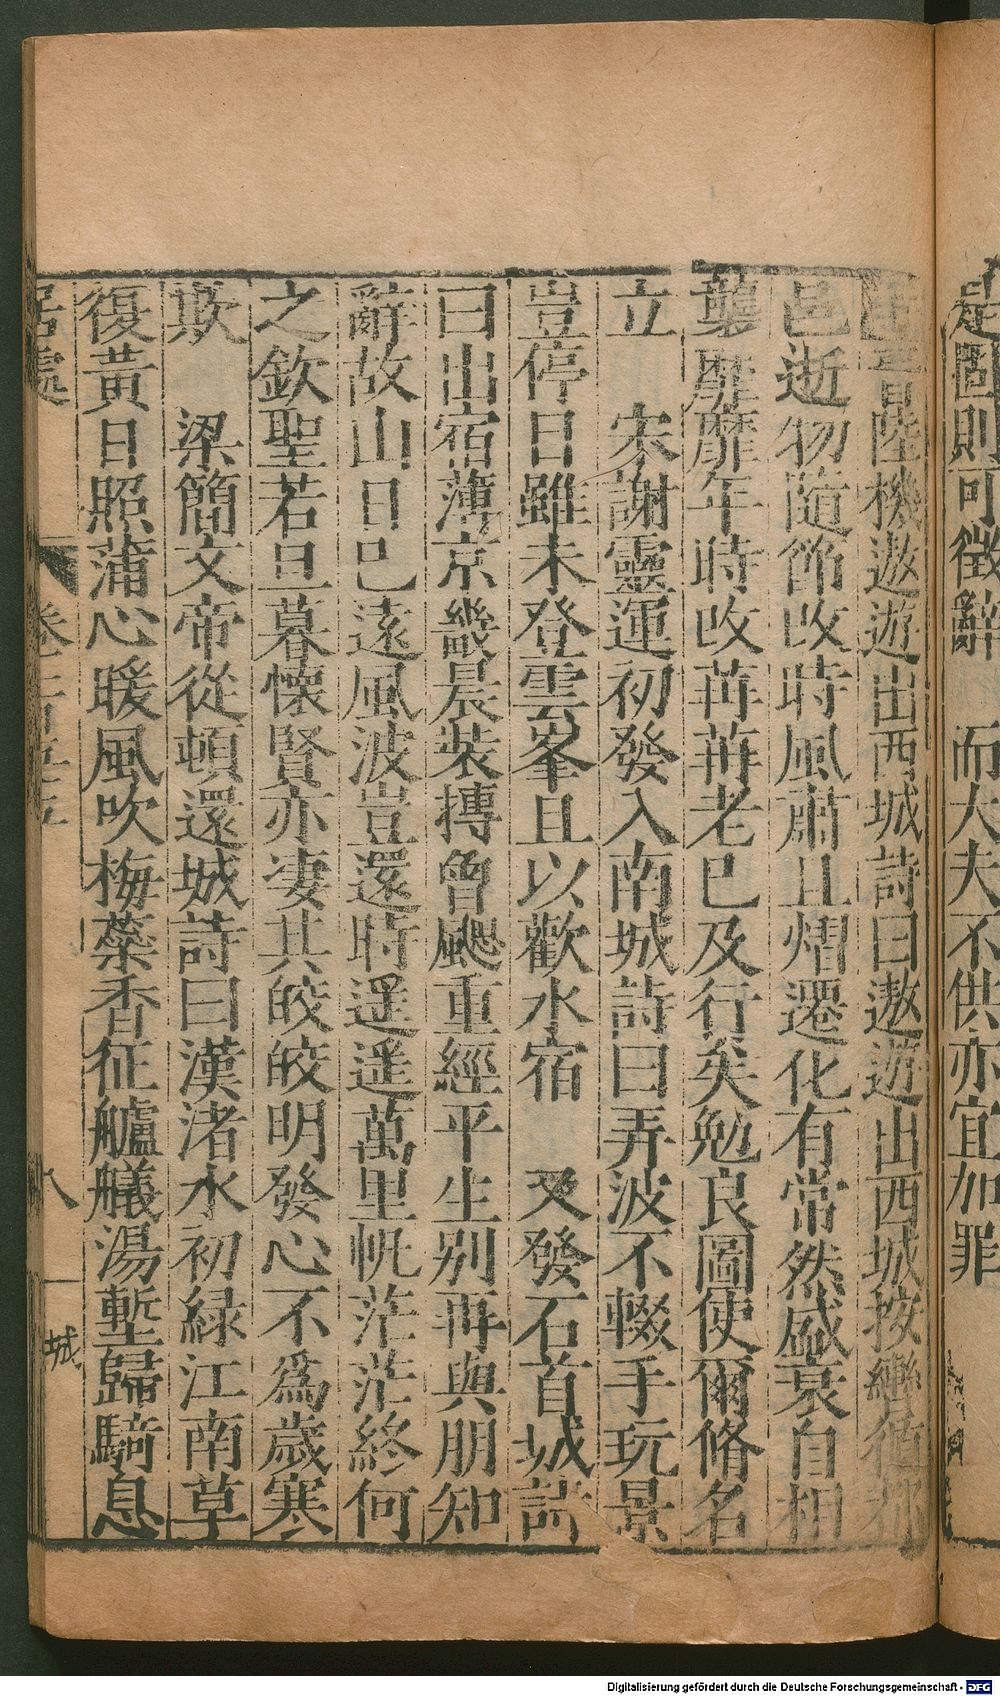 是圖則可徵辭　而大夫不供亦宜加罪
晉陸機遨遊出西城詩曰遨遊出西城按轡循都
邑逝物隨節改時風肅且熠遷化有常然盛衰自相
襲靡靡年時改苒苒老已及行矣勉良圖使爾脩名
立　宋謝靈運初發入南城詩曰弄波不輟手玩景
豈停目雖未登雲峯且以歡水宿　又發石首城詩
曰出宿薄京畿晨裝摶曾颸重經平生别再與朋知
辭故山日已遠風波豈還時遥遥萬里帆茫茫終何
之欽聖若旦暮懷賢亦凄其皎皎明發心不爲歲寒
欺　梁簡文帝從頓還城詩曰漢渚水初緑江南草
復黄日照蒲心暖風吹梅蘂香征艫艤湯塹歸騎息
居處　卷　八　城
Digitalisierung gefördert durch die Deutsche Forschungsgemeinschaft - DFG